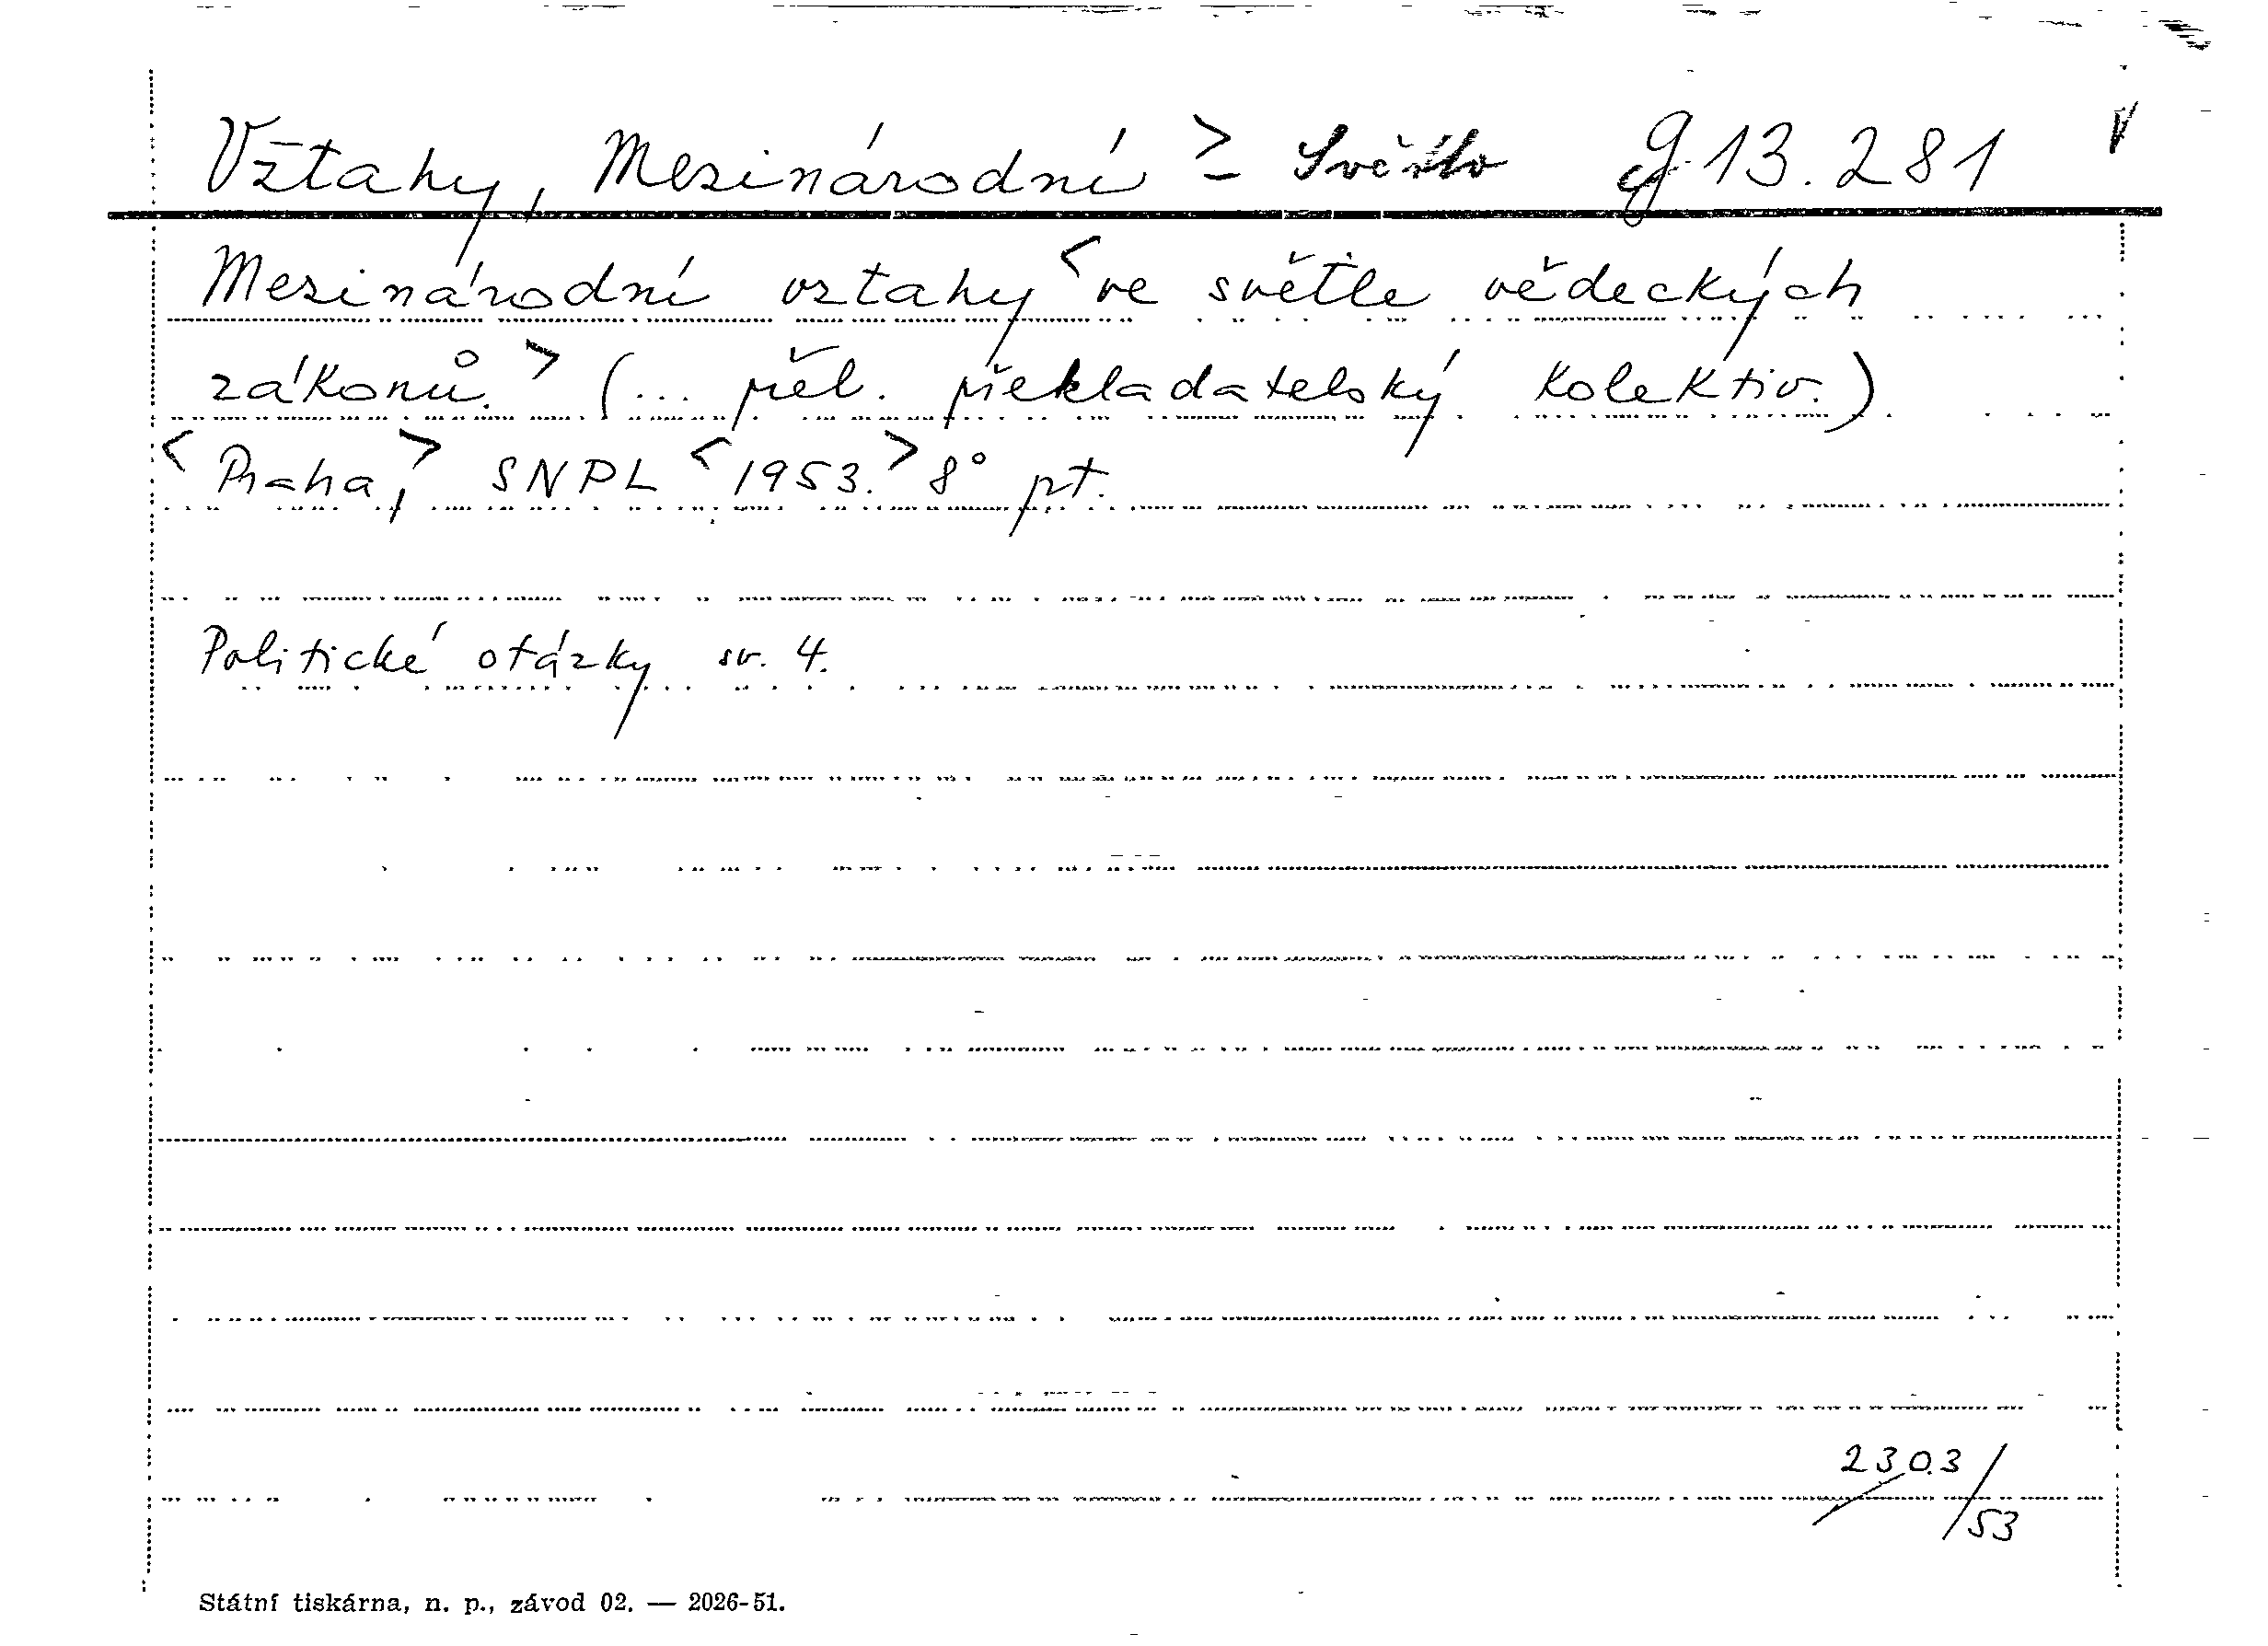 Vztahy, Mezinárodní > - Světlo g 13.281
Mezinárodní vztahy < ve světle vědeckých
zákonů. > (... přel. překladatelský kolektiv.)
< Praha, > SNPL < 1953. > 8° pt.
Politické otázky sv. 4.
2303/53
Státní tiskárna, n. p., závod 02. — 2026-51.